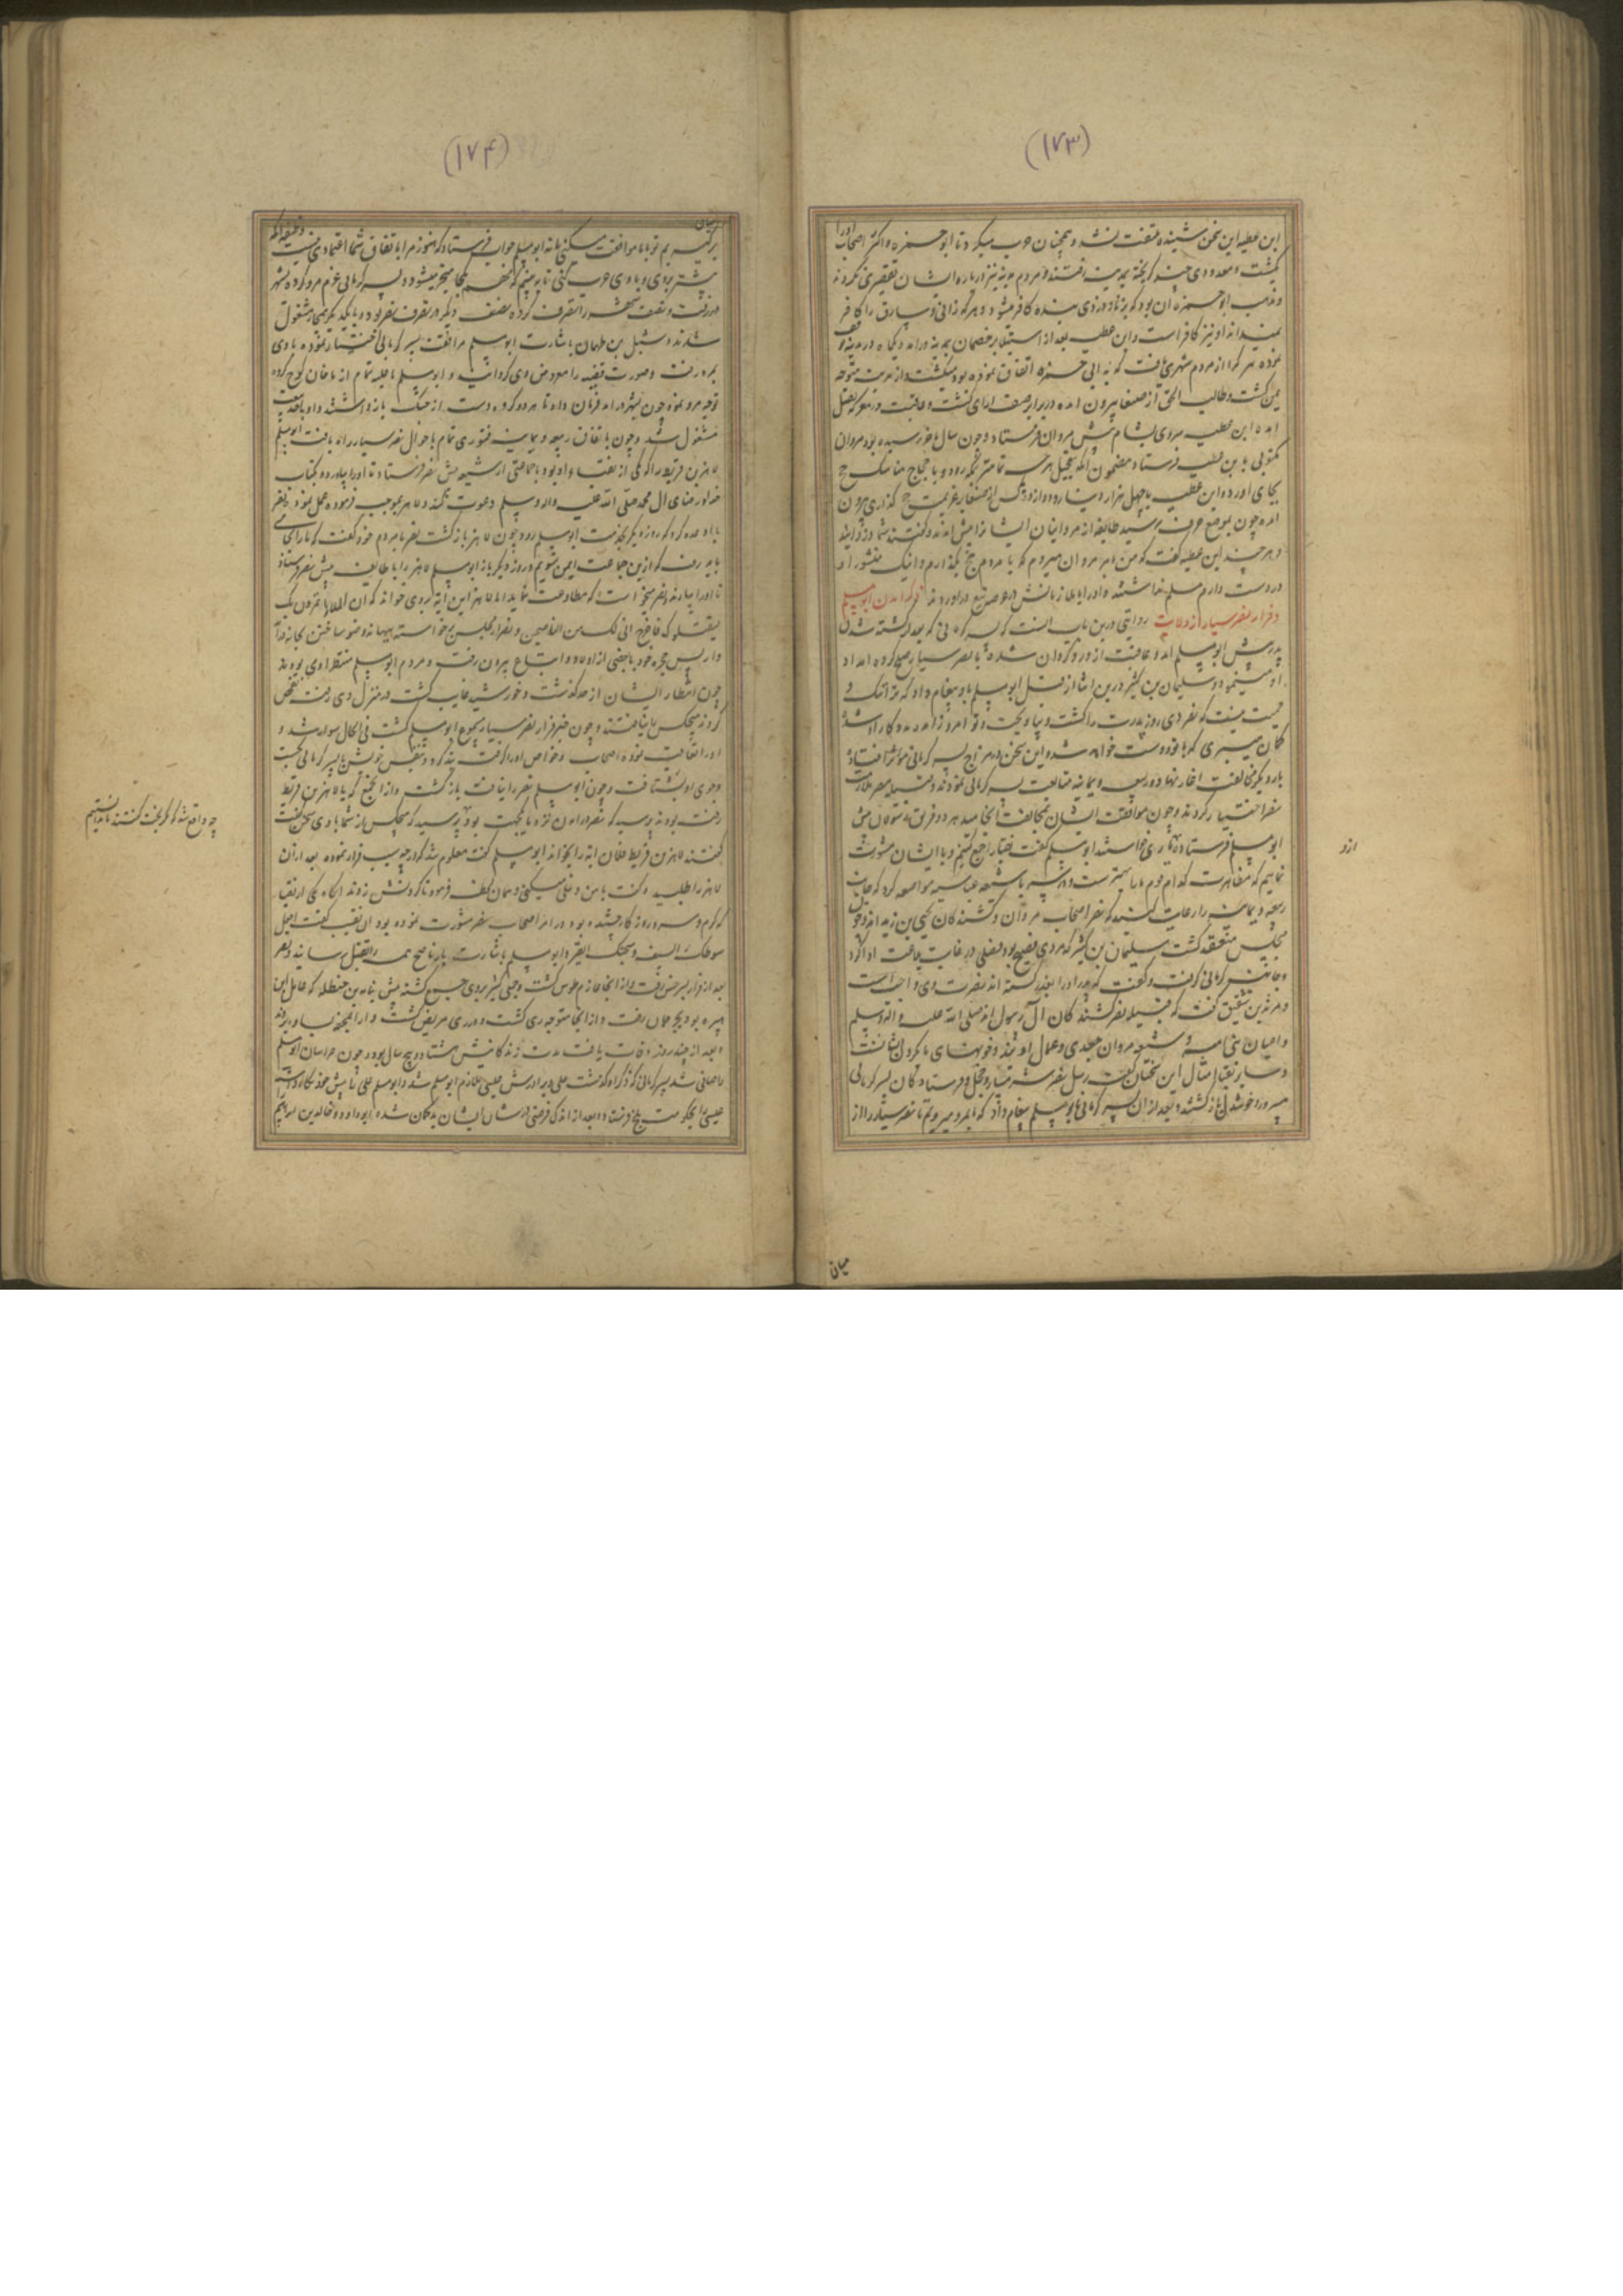 (۱۷۳)
ابن عطیه این سخن شنیده ملتفت نشد و همچنان حرب میکرد تا ابو حمزه و اکثر اصحاب او را
بکشت و معدودی چند کریخته بمدینه رفتند و مردم مدینه نیز درباره ایشان تقصیری نکردند
و مذهب ابو حمزه ان بود که بزنا و دزدی بنده کافر میشود و هر که زانی و سارق را کافر
نمیداند او نیز کافر است و ابن عطیه بعد از استیلا بر خصمان بمدینه درامد و یکماه در مدینه توقف
نموده هر کرا از مردم شهر یافت که با ابی حمزه اتفاق نموده بود میکشت و از مدینه متوجه
یمن کشت و طالب الحق از صنعا بیرون امده در برابر صف ارای کشت و عاقبت در معرکه بقتل
امده ابن عطیه سر وی بشام پیش مروان فرستاد و چون سال باخر رسیده بود مروان
مکتوبی بابن عطیه فرستاد مضمون انکه بتعجیل هر چه تمامتر بمکه رود و با حجاج مناسک حج
بجای اورد و ابن عطیه با چهل هزار دینار و دوازده کس از صنعا بعزیمت حج کذاری بیرون
امده چون بموضع جرف رسید طایفه از مردم انجا ایشانرا پیش امدند و کفتند شما دزدانید
و هر چند ابن عطیه کفت که من بامر مروان میروم که با مردم حج بکذارم و اینک منشور او
در دست دارم مسلم نداشتند و او را با ملازمانش در عرصه تیغ دراوردند ذکر امدن ابو مسلم
و فرار نصر سیار از ولایت روایتی درین باب انست که پسر کرمانی که بعد از کشته شدن
پدرش ابو مسلم امد و عاقبت از او رو کردان شده با نصر سیار صلح کرده امداد
او مینمود و سلیمان بن کثیر درین اثنا از قبل ابو مسلم باو پیغام داد که ترا ننک و
حمیت نیست که نصر دی روز پدرت را کشت و بیاویخت و تو امروز او را مدد کار او شده
کمان میبری که با تو دوست خواهد شد و این سخن در مزاج پسر کرمانی مؤثر افتاده
بار دیکر مخالفت اغاز نهاد و ربیعه و یمانیه متابعت پسر کرمانی نمودند و قبیله مضر ملازمت
نصر اختیار کردند و چون موافقت ایشان بمخالفت انجامید هر دو فریق رسولان پیش
ابو مسلم فرستاده یاری خواستند ابو مسلم کفت نقبا را جمع کنیم و با ایشان مشورت
نماییم که مظاهرت کدام قوم ما را بهتر است و در سر با شیعه عباسیه مواضعه کرد که جانب
ربیعه و یمانیه را رعایت کنید که نصر اصحاب مروان و کشندکان یحیی بن زید اند و چون
مجلس منعقد کشت سلیمان بن کثیر که مردی فصیح بود فصلی در غایت بلاغت ادا کرد
و جانب پسر کرمانی کرفت و کفت که پدر او را بغدر کشته اند نصرت وی واجبست
و مرثد بن شقیق کفت که قبیله نصر کشندکان ال رسول اند صلی الله علیه و اله و سلم
و اعیان بنی امیه و شیعه مروان جعدی و عمال او یند و خونهای ما در کردن ایشانست
و سایر نقبا امثال این سخنان کفتند رسل نصر سرشته تیار و خجل و فرستادکان پسر کرمانی
مسرور و خوشدل بازکشتند و بعد از ان پسر کرمانی بابو مسلم پیغام داد که با مرو میرویم تا نصر سیار را از
ازو
میان
(۱۷۴)
میان برکیریم تو با ما موافقت میکنی یا نه ابو مسلم جواب فرستاد که هنوز مرا باتفاق شما اعتمادی نیست وظیفه انکه
پیشتر بروی و با وی حرب کنی تا ببینم که مهم بکجا منجر میشود و پسر کرمانی عزم مرو کرده بشهر
دررفت و نصف شهر را بتصرف کرده نصف دیکر در تصرف نصر بود و با یکدیکر بمحاربه مشغول
شدند و شبل بن طهمان باشارت ابو مسلم مرافقت پسر کرمانی اختیار نموده با وی
بمرو رفت و صورت قضیه را معروض وی کردانید و ابو مسلم با جلبه تمام از ماخان کوچ کرده
توجه مرو نموده چون بشهر درامد فرمان داد تا هر دو کروه دست از جنک بازداشتند و او باخذ بیعت
مشغول شد و چون باتفاق ربیعه و یمانیه فتوری تمام باحوال نصر سیار راه یافت ابو مسلم
لاهز بن قریظ را که یکی از نقبا او بود با جماعتی از شیعه پیش نصر فرستاد تا او را بیاورد و بکتاب
خدا و رضای ال محمد صلی الله علیه و اله و سلم دعوت کند و لاهز بموجب فرموده عمل نمود و نصر
با او وعده کرد که روز دیکر بخدمت ابو مسلم رود چون لاهز بازکشت نصر با مردم خود کفت که ما را بجای
باید رفت که از این جماعت ایمن شویم و روز دیکر باز ابو مسلم لاهز را با طایفه پیش نصر فرستاد
تا او را بیارند و نصر میخواست که مطاوعت نماید اما لاهز این ایه بروی خواند که ان الملا یاتمرون بک
لیقتلوک فاخرج انی لک من الناصحین و نصر از مجلس برخاسته ببهانه وضو ساختن بخانه درامد
و از پس حجره خود با بعضی از اولاد و اتباع بیرون رفت و مردم ابو مسلم منتظر او می بودند
چون انتظار ایشان از حد کذشت و خورشید غایب کشت در منزل وی رفته تفحص
کردند هیچکس نیافتند و چون خبر فرار نصر سیار مسموع ابو مسلم کشت فی الحال سوار شد و
اورا تعاقب نموده اصحاب و خواص او را کرفت بند کرد و بنفس خویش با پسر کرمانی بجست
وجوی او بشتافت و چون ابو مسلم نصر را نیافت بازکشت و از انجمع که با لاهز بن قریظ
رفته بودند پرسید که نصر در امدن نزد ما یکجهت بود پرسید که هیچکس از شما با وی سخن کفت
کفتند لاهز بن قریظ فلان ایه را بخواند ابو مسلم کفت معلوم شد که او بچه سبب فرار نموده بعد از ان
لاهز را طلبیده کفت با من دغلی میکنی و همان لحظه فرمود تا کردنش زدند انکاه یکی از نقبا
که کرم و سرد روزکار چشیده بود و در امر اصحاب نصر مشورت نموده بود ان نقیب کفت اجعل
سوطک السیف و سجنک القبر و ابو مسلم باشارت یار ناصح همه را بقتل رسانید و نصر
بعد از فرار بسرخس رفت و از انجا عازم طوس کشت و جمعی کثیر بروی جمع کشته پیش نباته بن حنظله که عامل ابن
هبیره بود بجرجان رفت و از انجا متوجه ری کشت و در ری مریض کشت و او را بمحفه بساوه بردند
و بعد از چند روز وفات یافت مدت زندکانیش هشتاد و پنج سال بود و چون خراسان ابو مسلم
را صافی شد پسر کرمانی که ذکر او کذشت علی و برادرش عیسی ملازم ابو مسلم شد و ابو مسلم علی را پیش خود نکاه داشته
عیسی را بحکومت بلخ فرستاد و بعد از اندک فرصتی از شان ایشان بدکمان شده ابو داود و خالد بن ابراهیم را
چه واقع شد که کریخت کفتند ما ندانستیم